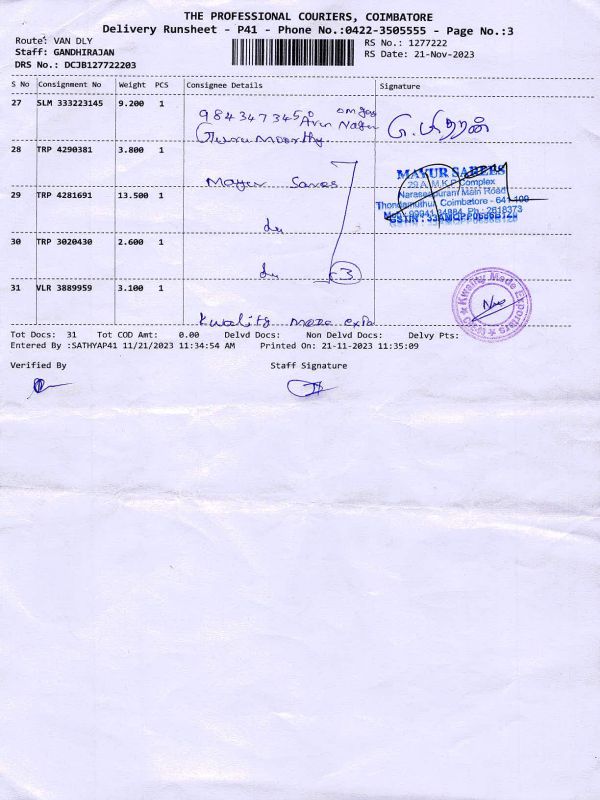 THE PROFESSIONAL COURIERS, COIMBATORE
Delivery Runsheet - P41 - Phone No.:0422-3505555 - Page No.:3
Route: VAN DLY
RS No.: 1277222
Staff: GANDHIRAJAN
RS Date: 21-Nov-2023
DRS No.: DCJB127722203
S No Consignment No Weight PCS Consignee Details Signature
27 SLM 333223145 9.200 1
9843473450
Arun Nagar
Guru Moorthy
28 TRP 4290381 3.800 1
Mayur Sarees
MAYUR SAREES
29 A, M.K.P Complex
Narasapuram Main Road
Thondamuthur, Coimbatore - 641 109
29 TRP 4281691 13.500 1
do
30 TRP 3020430 2.600 1
do 3
31 VLR 3889959 3.100 1
Kwality Made Exporters
Tot Docs: 31 Tot COD Amt: 0.00 Delvd Docs: Non Delvd Docs: Delvy Pts:
Entered By :SATHYAP41 11/21/2023 11:34:54 AM Printed On: 21-11-2023 11:35:09
Verified By Staff Signature